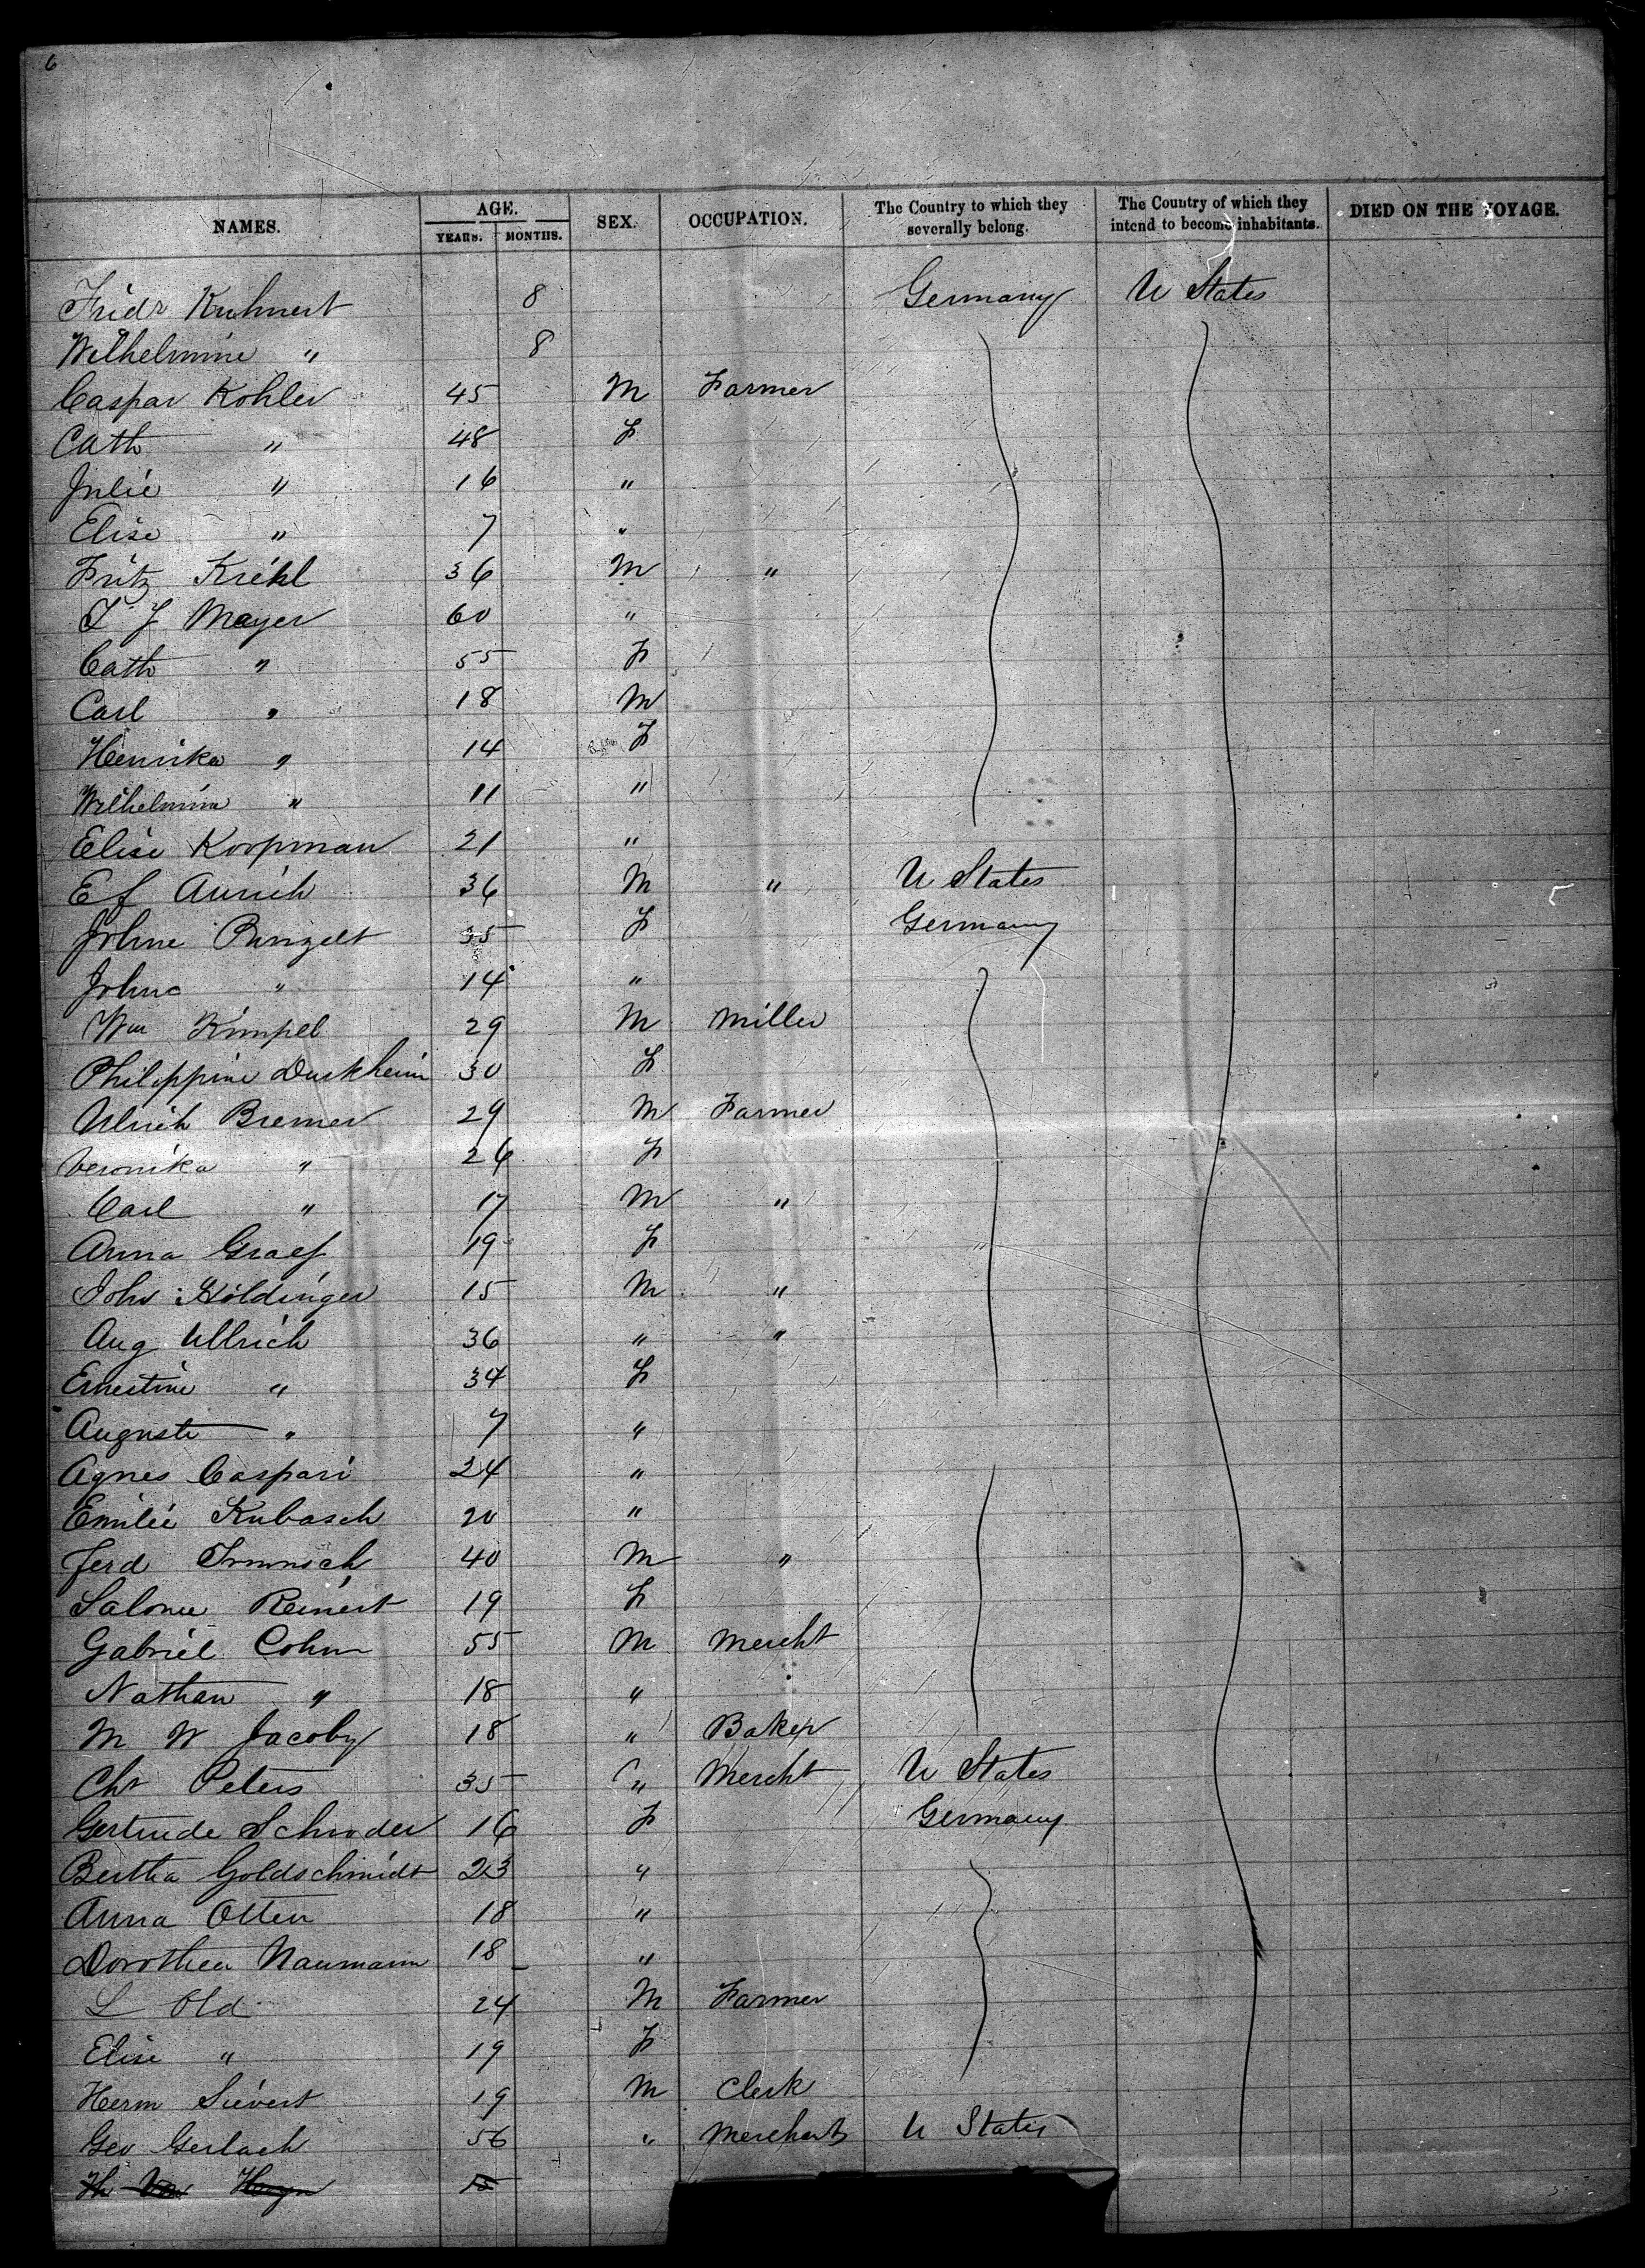 6
NAMES. AGE. YEARS. MONTHS. SEX. OCCUPATION. The Country to which they severally belong. The Country of which they intend to become inhabitants. DIED ON THE VOYAGE.
Fridr Kuhnert 8 Germany U States
Wilhelmine " 8
Caspar Kohler 45 M Farmer
Cath " 48 F
Julie " 16 "
Elise " 7 "
Fritz Kriehl 36 M "
T J Mayer 60 "
Cath " 55 F
Carl " 18 M
Henrika " 14 F
Wilhelmina " 11 "
Elise Koopman 21 "
E f Aurich 36 M " U States
Johne Punzelt 35 F Germany
Johne " 14 "
Wm Kimpel 29 M Miller
Philippine Durkheim 30 F
Ulrich Bremer 29 M Farmer
Veronika " 26 F
Carl " 17 M "
Anna Graef 19 F
John Höldinger 15 M "
Aug Ullrich 36 " "
Ernestine " 34 F
Auguste " 7 "
Agnes Caspari 24 "
Emilie Kubasch 20 "
Ferd 40 M "
Salome Reinert 19 F
Gabriel Cohn 55 M Mercht
Nathan " 18 "
M W Jacoby 18 " Baker
Chr Peters 35 " Mercht U States
Gertrude Schroder 16 F Germany
Bertha Goldschmidt 23 "
Anna Otten 18 "
Dorothea Naumann 18 "
L Old 24 M Farmer
Elise " 19 F
Herm Sievert 19 M Clerk
Geo Gerlach 56 " Merchant U States